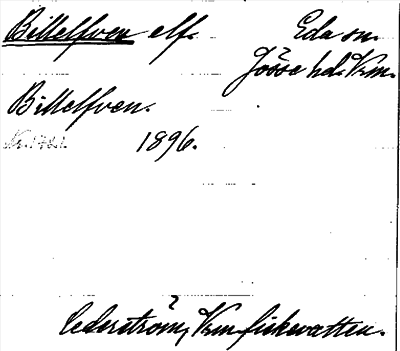 Billelfven elf. Eda sn.
Jösse hd. Vrm.
Billelfven.
1896.
Cederström, Vrm fiskevatten.